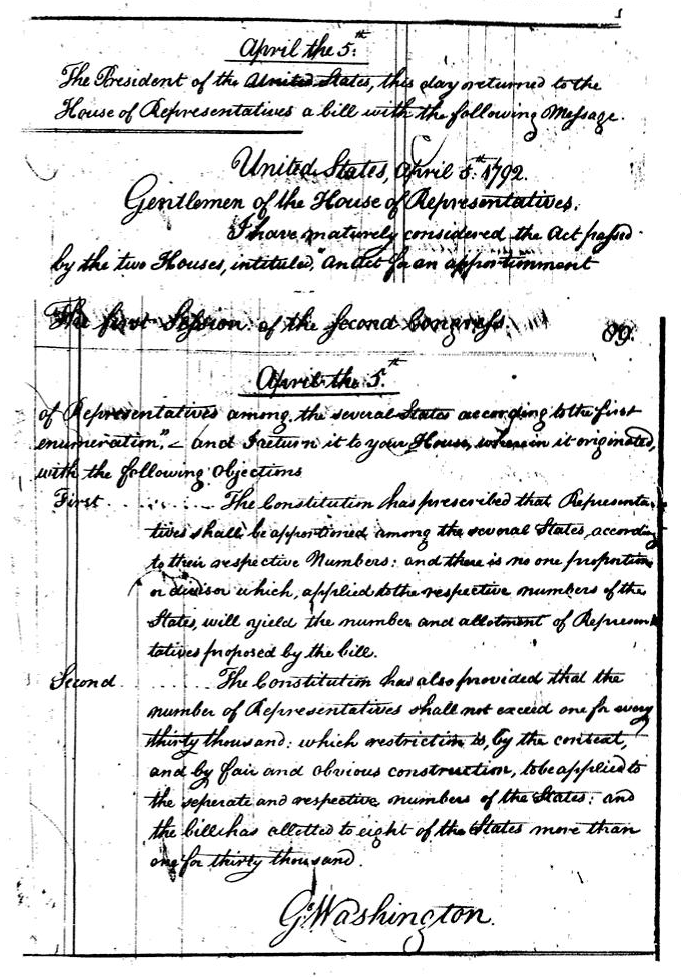 April the 5.th
The President of the United States, this day returned to the
House of Representatives a bill with the following Message.
United States, April 5.th 1792.
Gentlemen of the House of Representatives.
I have maturely considered the Act passed
by the two Houses, intituled, "An Act for an apportionment
The first Session of the Second Congress.
89.
April the 5.th
of Representatives among the several States according to the first
enumeration," and I return it to your House, wherein it originated,
with the following objections
First . . . . . . The Constitution has prescribed that Representa-
tives shall be apportioned among the several States, according
to their respective Numbers: and there is no one proportion
or divisor which, applied to the respective numbers of the
States, will yield the number and allotment of Represen-
tatives proposed by the bill.
Second . . . . . . The Constitution has also provided that the
number of Representatives shall not exceed one for every
thirty thousand: which restriction is, by the context,
and by fair and obvious construction, to be applied to
the seperate and respective numbers of the States: and
the bill has allotted to eight of the States more than
one for thirty thousand.
G. Washington.